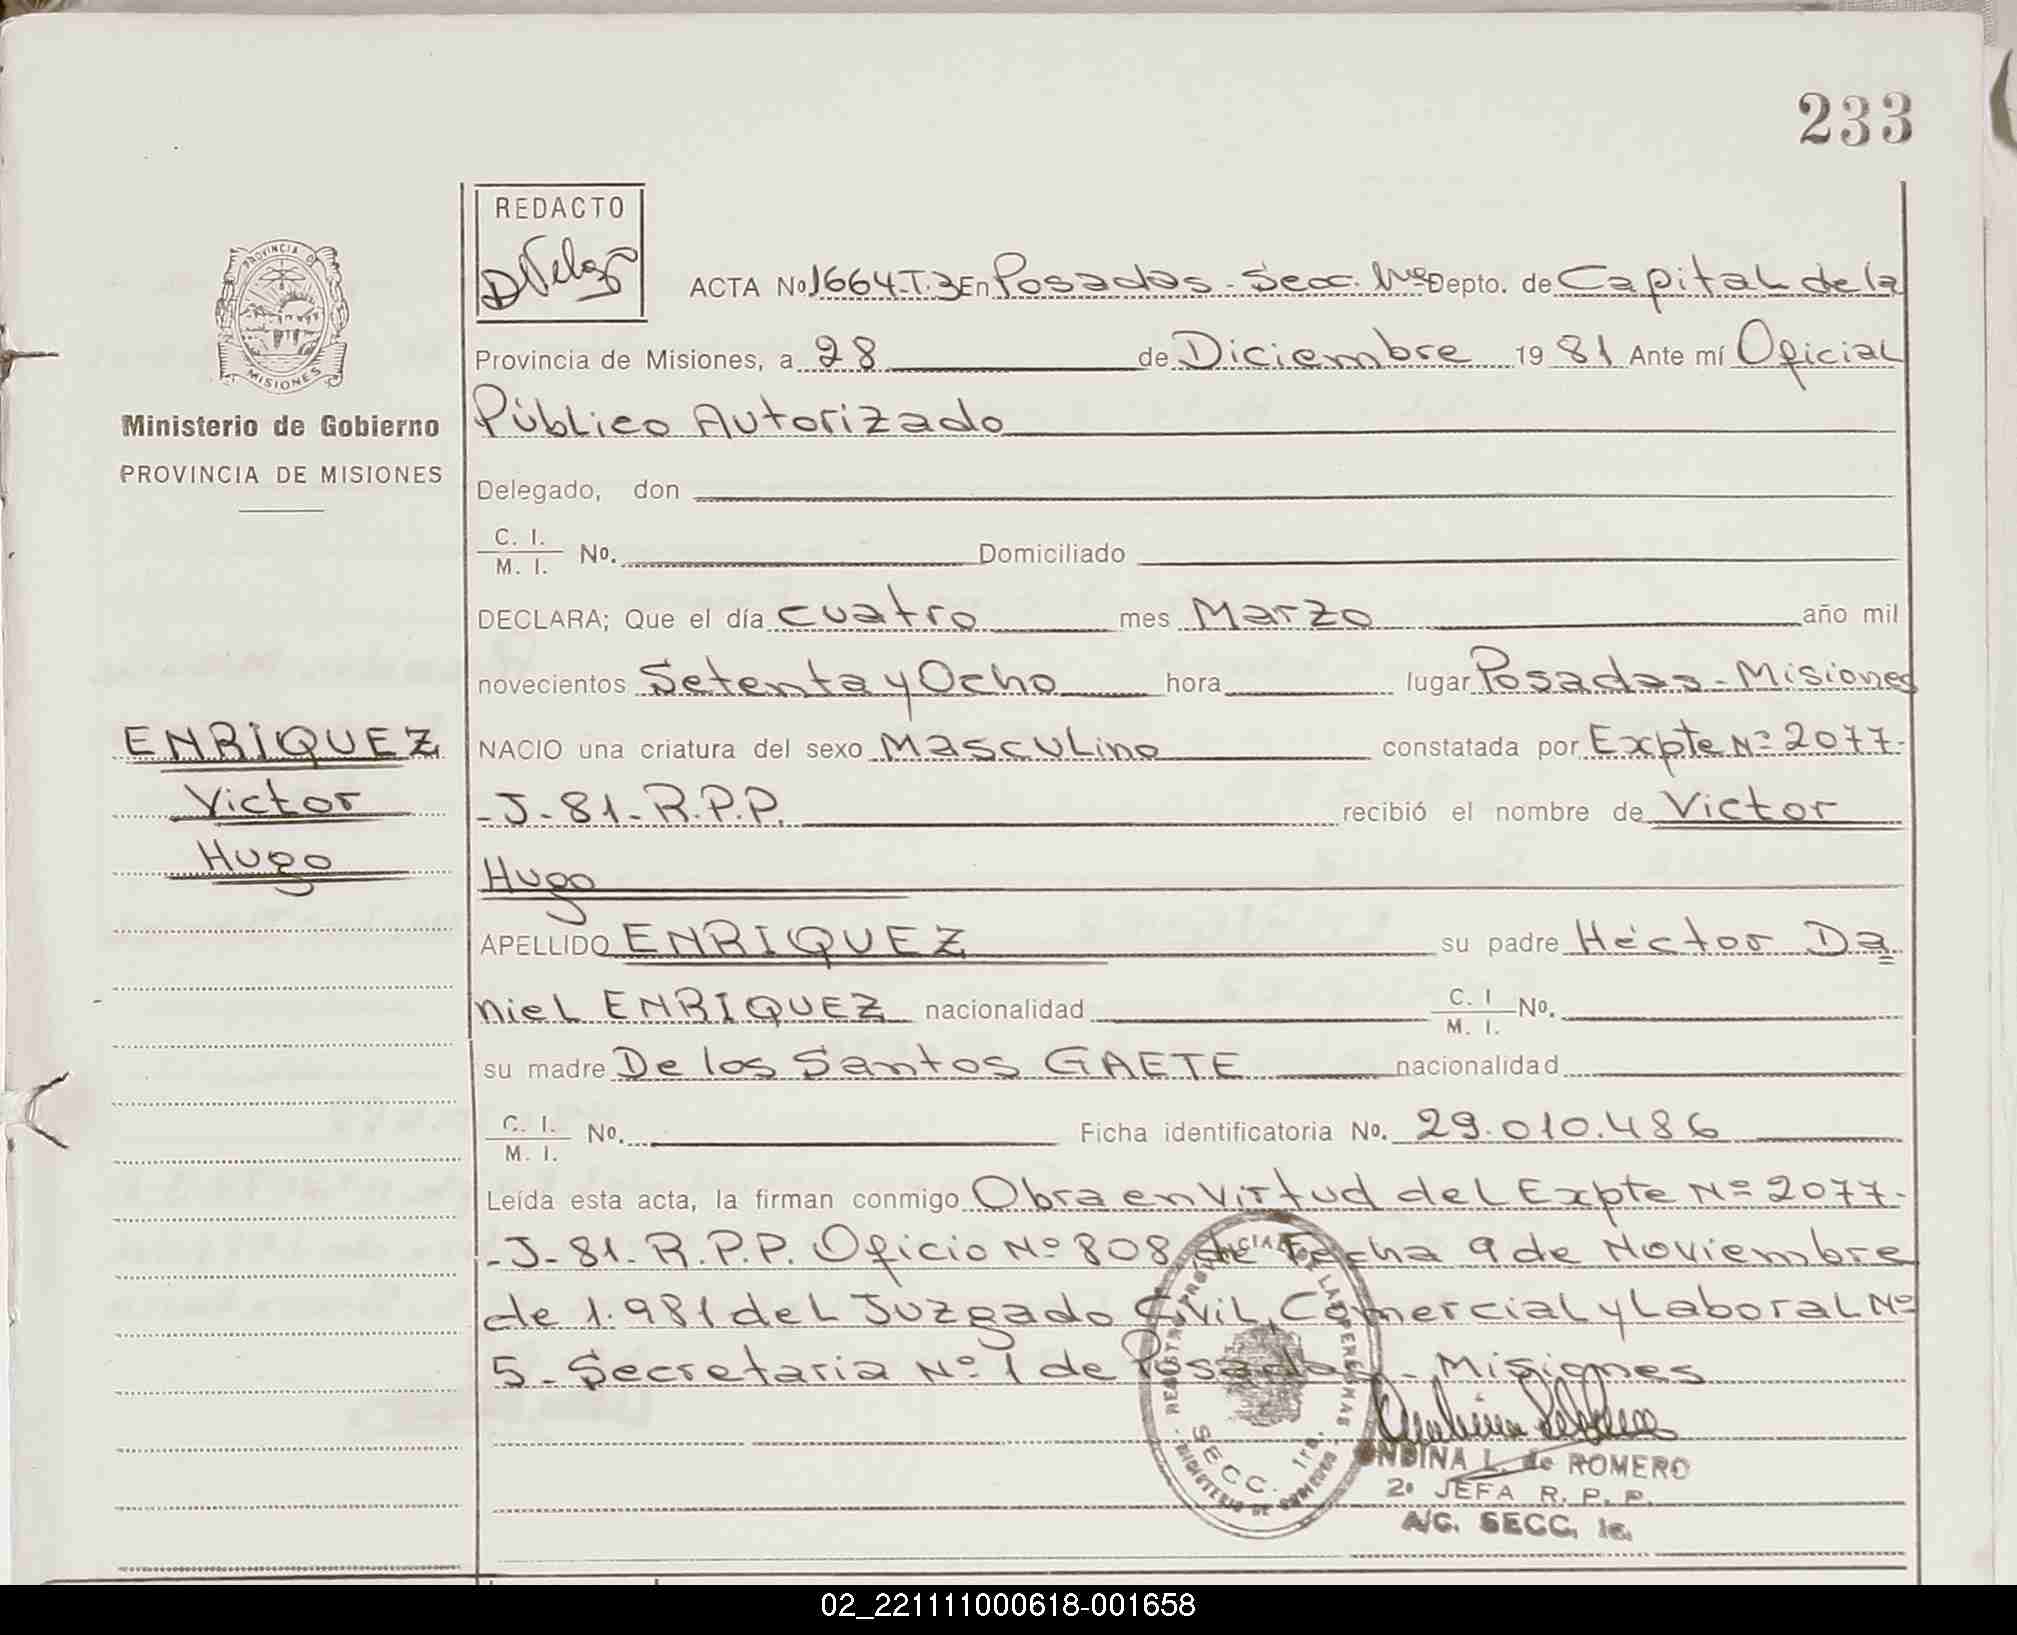 233
REDACTO
PROVINCIA D
MISIONES
Ministerio de Gobierno
PROVINCIA DE MISIONES
ENRIQUEZ
Victor
Hugo
ACTA Nº 1664-T.3 En Posadas - Secc. 1ra Depto. de Capital de la
Provincia de Misiones, a 28 de Diciembre 19 81 Ante mí Oficial
Público Autorizado
Delegado, don
C. I.
M. I. Nº. Domiciliado
DECLARA; Que el día cuatro mes Marzo año mil
novecientos Setenta y Ocho hora lugar Posadas - Misiones
NACIO una criatura del sexo Masculino constatada por Expte Nº 2077-
-J-81-R.P.P. recibió el nombre de Victor
Hugo
APELLIDO ENRIQUEZ su padre Héctor Da
niel ENRIQUEZ nacionalidad C. I
M. I. Nº.
su madre De los Santos GAETE nacionalidad
C. I.
M. I. Nº. Ficha identificatoria Nº. 29.010.486
Leída esta acta, la firman conmigo Obra en Virtud del Expte Nº 2077-
-J-81-R.P.P. Oficio Nº 808 de Fecha 9 de Noviembre
de 1.981 del Juzgado Civil, Comercial y Laboral Nº
5 - Secretaria Nº 1 de Posadas - Misiones
REGISTRO PROVINCIAL DE LAS PERSONAS
SECC. 1ra.
MINISTERIO DE GOBIERNO
ONDINA L. de ROMERO
2º JEFA R. P. P.
A/C. SECC. 1ª.
02_221111000618-001658